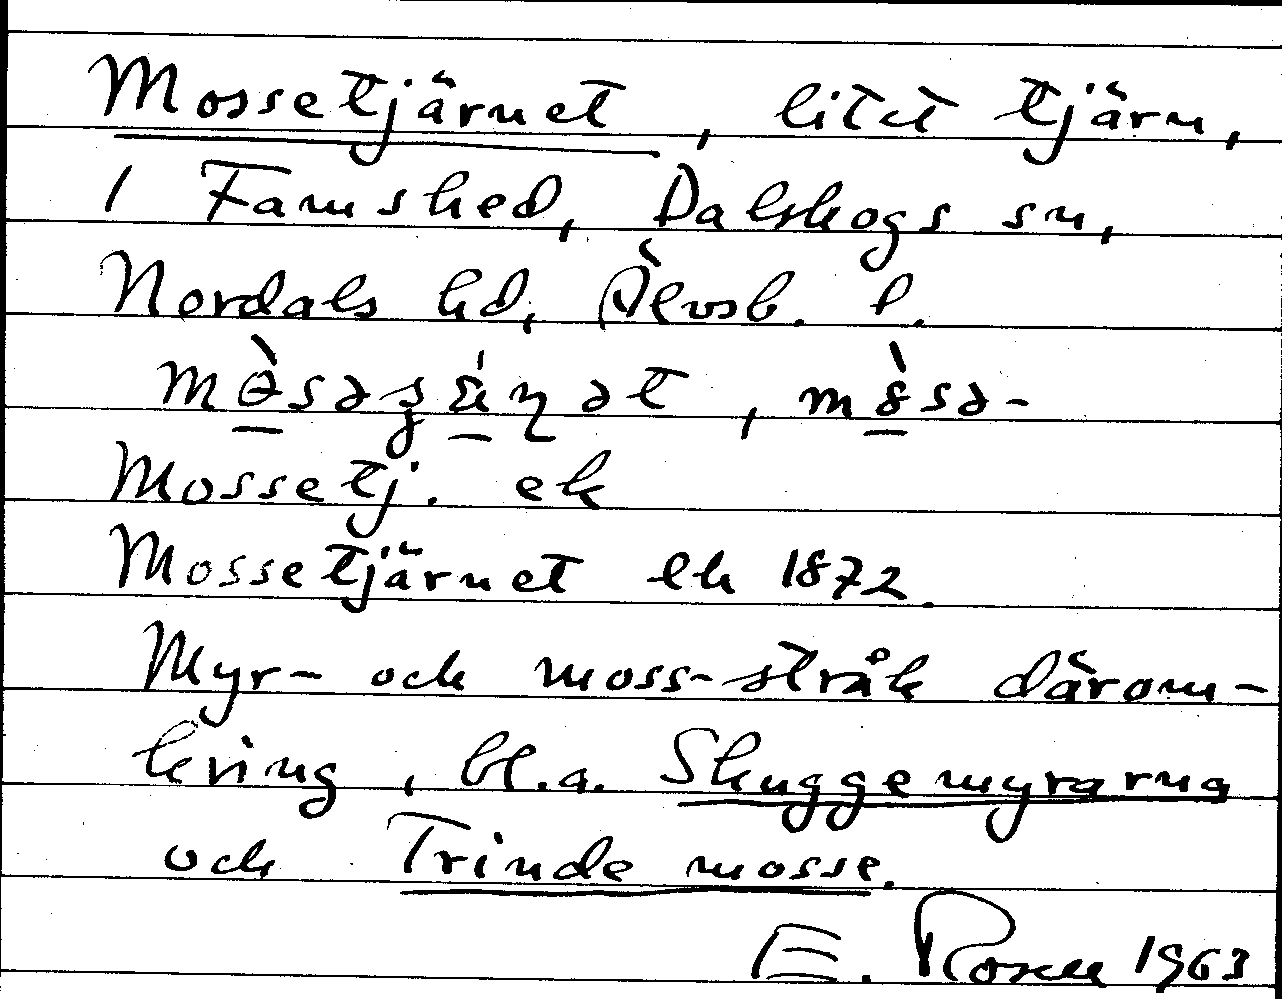 Mossetjärnet, litet tjärn,
i Famshed, Dalskogs sn,
Nordals hd, Älvsb. l.
Mossetj. ek
Mossetjärnet lk 1872.
Myr- och moss-stråk därom-
kring, bl.a. Skuggemyrarna
och Trinde mosse.
E. Rosell 1963